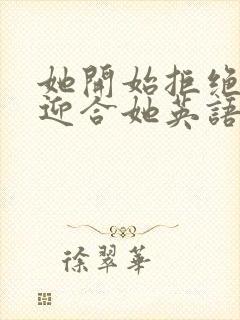 她開始拒绝
迎合她英語
徐翠華